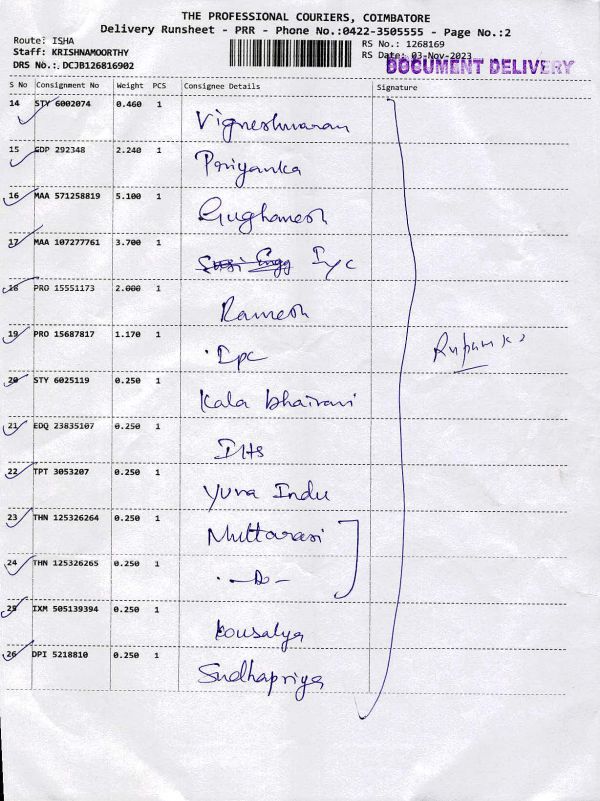 THE PROFESSIONAL COURIERS, COIMBATORE
Delivery Runsheet - PRR - Phone No.:0422-3505555 - Page No.:2
Route: ISHA
RS No.: 1268169
Staff: KRISHNAMOORTHY
RS Date: 03-Nov-2023
DRS No.: DCJB126816902
DOCUMENT DELIVERY
S No Consignment No Weight PCS Consignee Details Signature
14 STY 6002074 0.460 1 Vigneshwaran
15 GDP 292348 2.240 1 Priyanka
16 MAA 571258819 5.100 1 Gughanesh
17 MAA 107277761 3.700 1 Iyc
18 PRO 15551173 2.000 1 Ramesh
19 PRO 15687817 1.170 1 Ipc
20 STY 6025119 0.250 1 Kala bhairavi
21 EDQ 23835107 0.250 1 IHS
22 TPT 3053207 0.250 1 Yuva Indu
23 THN 125326264 0.250 1 Muttarasi
24 THN 125326265 0.250 1 -D-
25 IXM 505139394 0.250 1 kousalya
26 DPI 5218810 0.250 1 Sudhapriya